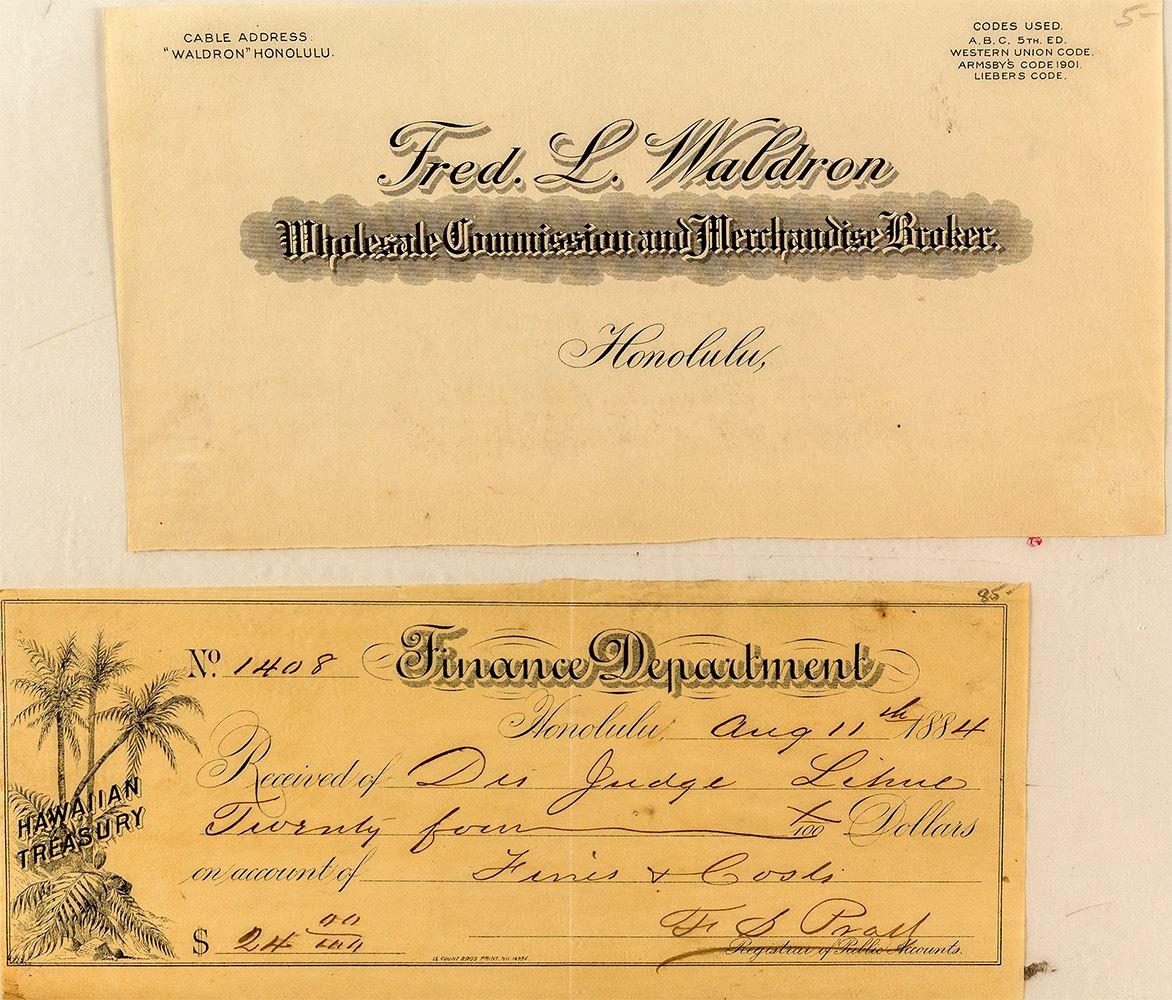 CABLE ADDRESS.
"WALDRON" HONOLULU.
CODES USED.
A.B.C. 5TH. ED.
WESTERN UNION CODE.
ARMSBY'S CODE 1901.
LIEBERS CODE.
5-
Fred. L. Waldron
Wholesale Commission and Merchandise Broker.
Honolulu,
85-
No. 1408 Finance Department
Honolulu, Aug 11th 1884
Received of Dis Judge Lihue
Twenty four X/100 Dollars
HAWAIIAN
TREASURY
on account of Fines & Costs
$ 24 00/100
F S Pratt
Registrar of Public Accounts.